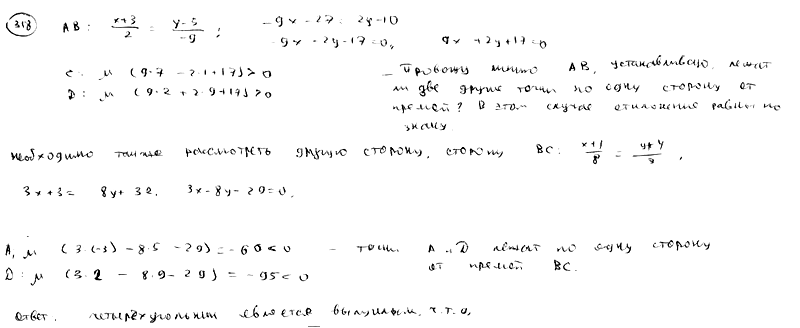 318 AB: x+3/2 = y-5/-9; -9x-27 = 2y-10
-9x-2y-17=0, 9x+2y+17=0
C: μ (9·7 - 2·1+17)>0
D: μ (9·2 + 2·9+17)>0
- Провожу линию AB, устанавливаю, лежат
ли две другие точки по одну сторону от
прямой? В этом случае отклонение равны по
знаку.
Необходимо также рассмотреть другую сторону, сторону BC: x+1/8 = y+4/3,
3x+3= 8y+32. 3x-8y-29=0.
A, μ (3·(-3) - 8·5 - 29) = -60<0 - точки A и D лежат по одну сторону
от прямой BC.
D: μ (3·2 - 8·9 - 29) = -95<0
Ответ. четырёхугольник является выпуклым, ч.т.д.